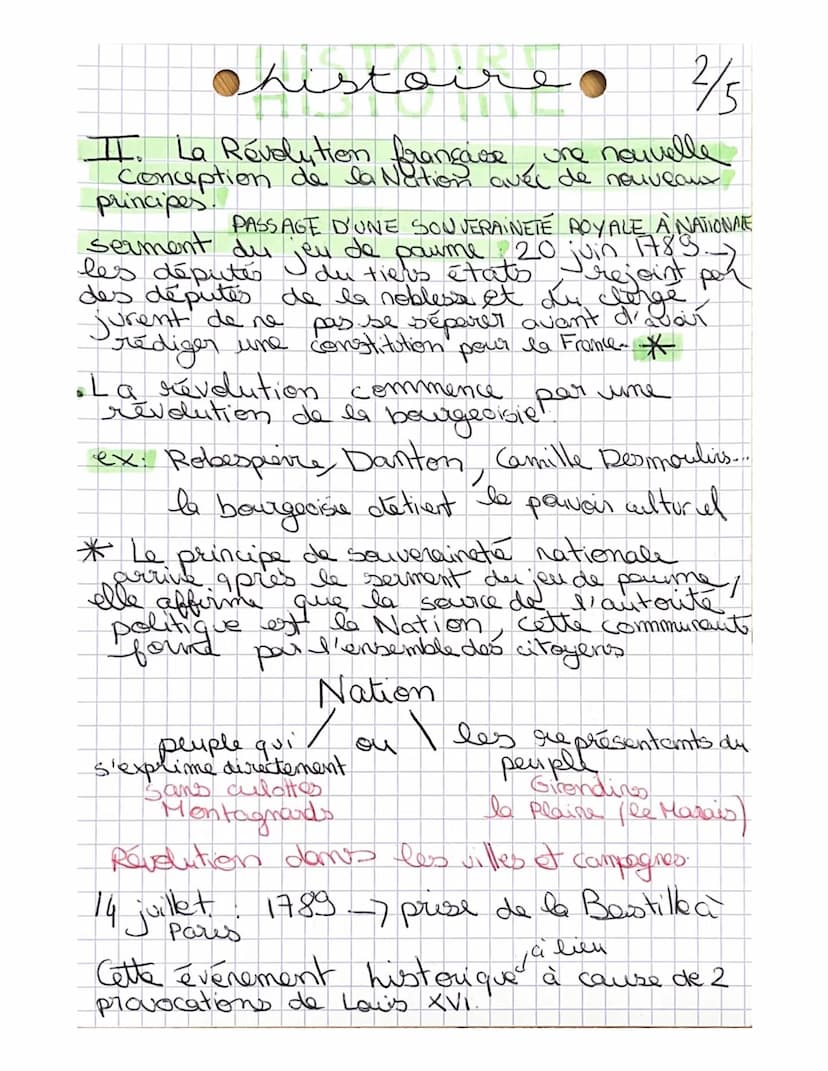 HISTOIRE
histoire
2/5
II. La Révolution française, une nouvelle
Conception de la Nation avec de nouveaux
principes.
PASSAGE D'UNE SOUVERAINETÉ ROYALE À NATIONALE
serment du jeu de paume : 20 juin 1789 →
les députés du tiers états, rejoint par
des députés de la noblesse et du clergé
jurent de ne pas se séparer avant d'avoir
rédiger une constitution pour la France. *
.La révolution commence par une
révolution de la bourgeoisie!
ex: Robespierre, Danton, Camille Desmoulins...
la bourgeoisie détient le pouvoir culturel
* Le principe de souveraineté nationale
arrive après le serment du jeu de paume,
elle affirme que la source de l'autorité
politique est la Nation, cette communauté
formé par l'ensemble des citoyens
Nation
peuple qui / ou \ les représentants du
s'exprime directement peuple
Sans culottes Girondins
Montagnards la Plaine (le Marais)
Révolution dans les villes et campagnes.
14 juillet : 1789 → prise de la Bastille à
Paris
Cette événement historique a lieu à cause de 2
provocations de Louis XVI.